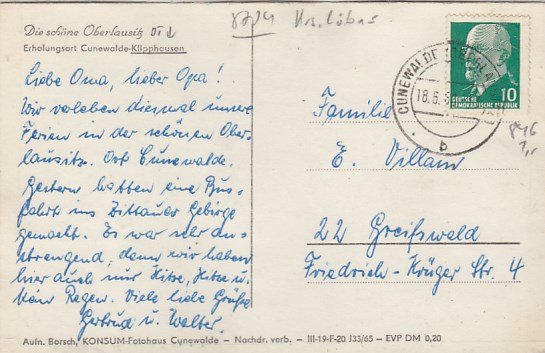 Die schöne Oberlausitz
Erholungsort Cunewalde-Klipphausen
Liebe Oma, lieber Opa!
Wir verleben diesmal unsere
Ferien in der schönen Ober-
lausitz. Ort Cunewalde.
Gestern hatten eine Bus-
fahrt ins Zittauer Gebirge
gemacht. Es war sehr ans-
trengend, denn wir haben
hier auch nur Hitze, Hitze u.
kein Regen. Viele liebe Grüße
Gertrud u. Walter.
Aufn. Borsch, KONSUM-Fotohaus Cunewalde – Nachdr. verb. – III-19-F-20 J33/65 – EVP DM 0,20
CUNEWALDE
18.6.
b
10
DEUTSCHE
DEMOKRATISCHE REPUBLIK
Familie
E. Villain
22 Greifswald
Friedrich-Krüger Str. 4